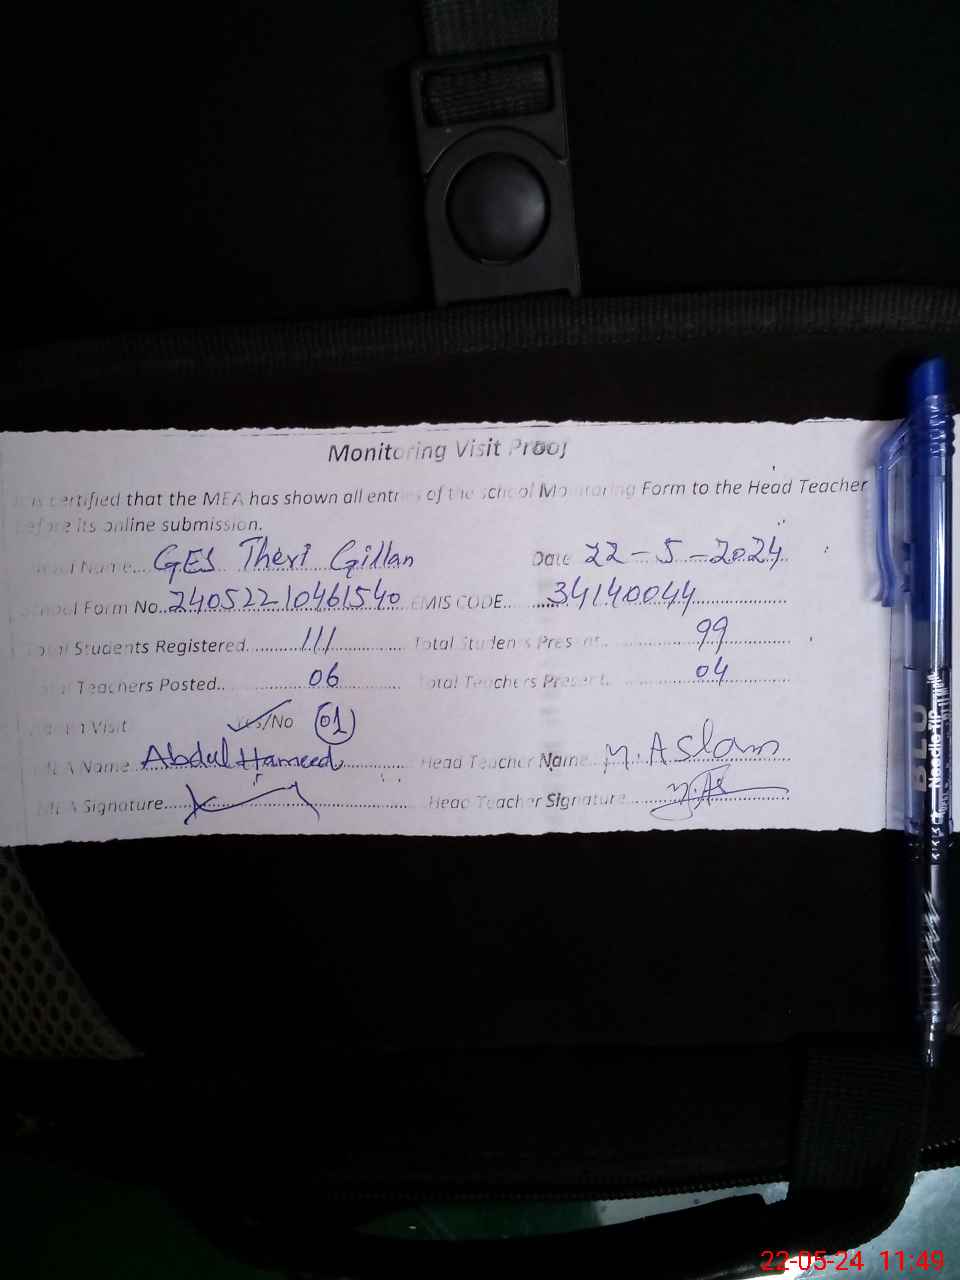 Monitoring Visit Proof
It is certified that the MEA has shown all entries of the school Monitoring Form to the Head Teacher
before its online submission.
School Name... GES Theri Gillan Date 22-5-2024
School Form No.. 24052210461540 EMIS CODE....... 34140044
Total Students Registered.... 111 Total Students Present... 99
Total Teachers Posted.. 06 Total Teachers Present.. 04
Visit Yes/No 01
MEA Name.. Abdul Hameed Head Teacher Name.. M. Aslam
MEA Signature.... Head Teacher Signature....
Needle TIP
22-05-24 11:49